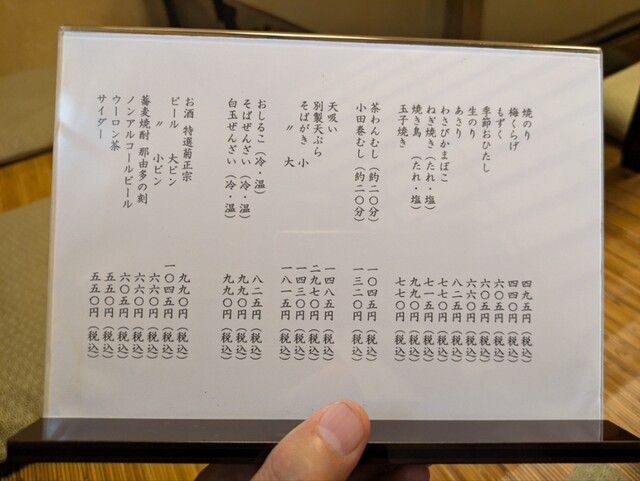 焼のり 四九五円（税込）
梅くらげ 四四〇円（税込）
もずく 六〇五円（税込）
季節おひたし 六〇五円（税込）
生のり 六六〇円（税込）
あさり 八二五円（税込）
わさびかまぼこ 七七〇円（税込）
ねぎ焼き（たれ・塩） 七一五円（税込）
焼き鳥（たれ・塩） 九九〇円（税込）
玉子焼き 七七〇円（税込）
茶わんむし（約二〇分） 一〇四五円（税込）
小田巻むし（約二〇分） 一三二〇円（税込）
天吸い 一四八五円（税込）
別製天ぷら 二九七〇円（税込）
そばがき 小 一四三〇円（税込）
〃 大 一八一五円（税込）
おしるこ（冷・温） 八二五円（税込）
そばぜんざい（冷・温） 九九〇円（税込）
白玉ぜんざい（冷・温） 九九〇円（税込）
お酒 特選菊正宗 九九〇円（税込）
ビール 大ビン 一〇四五円（税込）
〃 小ビン 六六〇円（税込）
蕎麦焼酎 那由多の刻 六六〇円（税込）
ノンアルコールビール 六〇五円（税込）
ウーロン茶 五五〇円（税込）
サイダー 五五〇円（税込）